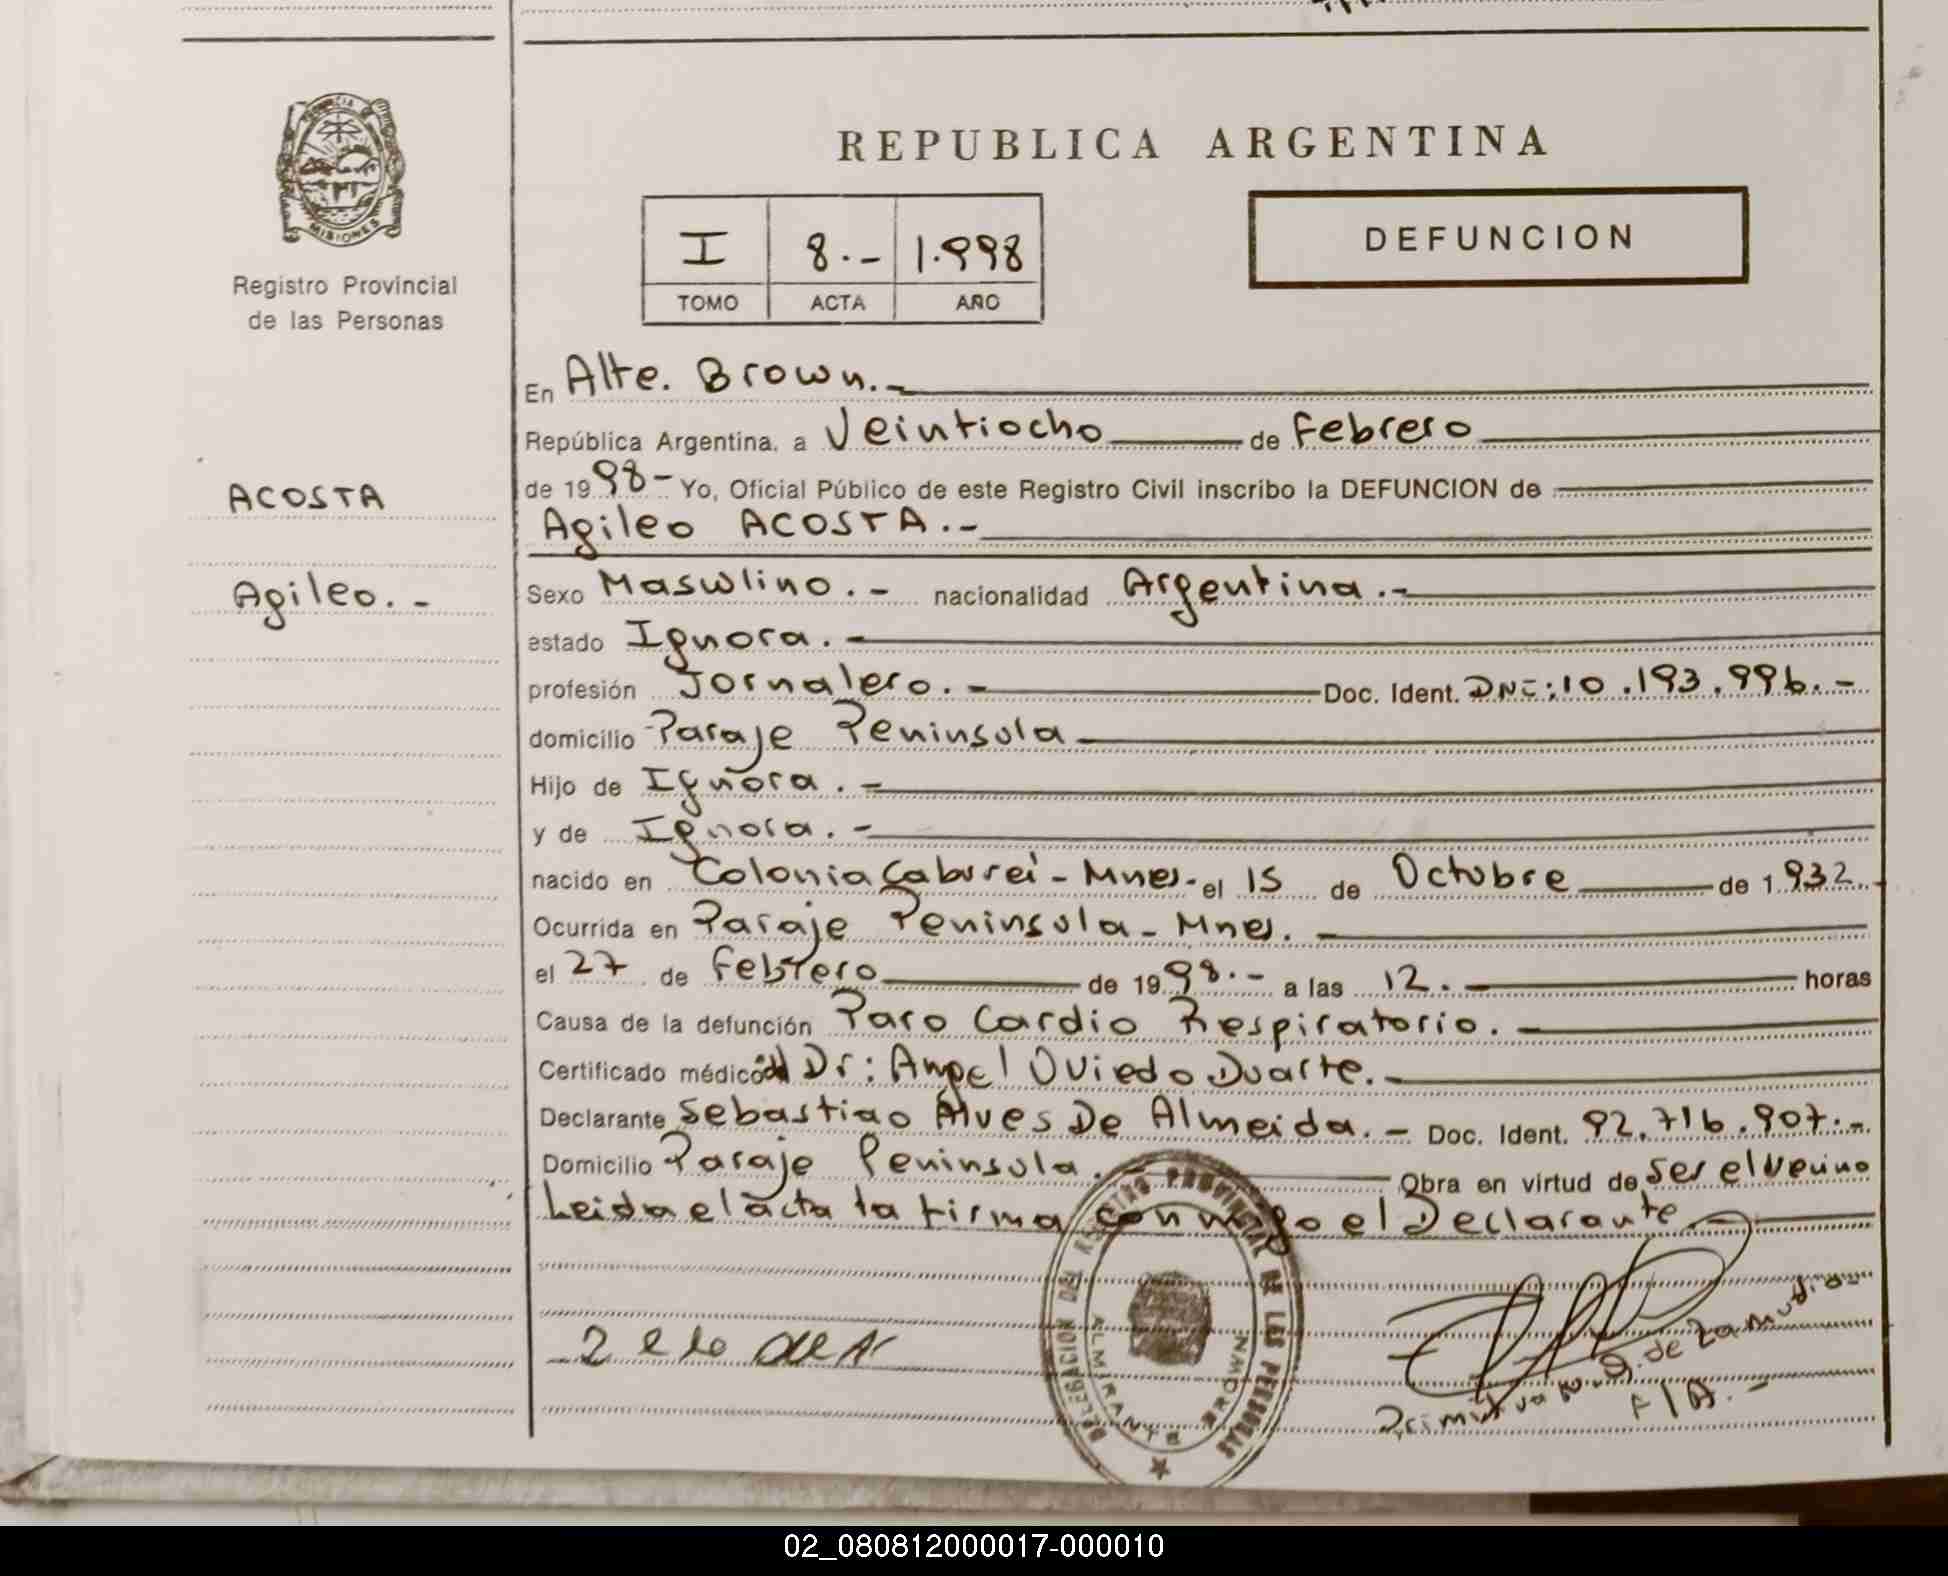 REPUBLICA ARGENTINA
PROVINCIA DE
MISIONES
Registro Provincial
de las Personas
I 8.- 1.998
TOMO ACTA AÑO
DEFUNCION
En Alte. Brown.-
República Argentina, a Veintiocho de Febrero
de 1998- Yo, Oficial Público de este Registro Civil inscribo la DEFUNCION de
ACOSTA
Agileo ACOSTA.-
Agileo.-
Sexo Masculino.- nacionalidad Argentina.-
estado Ignora.-
profesión Jornalero.- Doc. Ident. DNI:10.193.996.-
domicilio Paraje Peninsula
Hijo de Ignora.-
y de Ignora.-
nacido en Colonia Caburei - Mnes. el 15 de Octubre de 1.932
Ocurrida en Paraje Peninsula - Mnes.-
el 27 de Febrero de 1998.- a las 12.- horas
Causa de la defunción Paro Cardio Respiratorio.-
Certificado médico Dr: Angel Oviedo Duarte.-
Declarante Sebastiao Alves De Almeida.- Doc. Ident. 92.716.907.-
Domicilio Paraje Peninsula.- Obra en virtud de ser el Vecino
Leida el acta la firma conmigo el Declarante.-
DELEGACION DEL REGISTRO PROVINCIAL DE LAS PERSONAS
ALMIRANTE BROWN
de Zamudio-
F/A.-
02_080812000017-000010